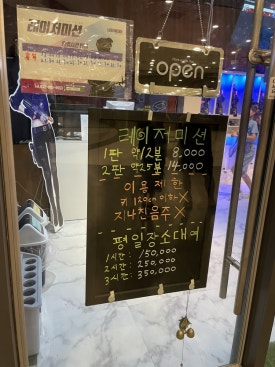 레이저미션
open
레이저미션
1판 약12분 8.000
2판 약25분 14.000
이용제한
키 120cm 이하 X
지나친음주 X
평일장소대여
1시간: 150,000
2시간: 250,000
3시간: 350,000